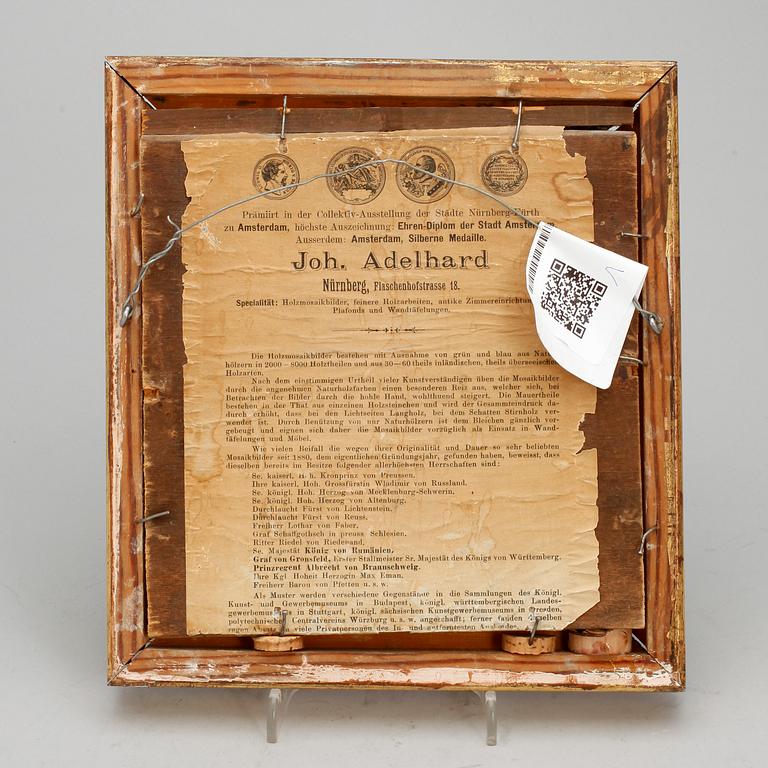 Prämiirt in der Collektiv-Ausstellung der Städte Nürnberg-Fürth
zu Amsterdam, höchste Auszeichnung: Ehren-Diplom der Stadt
Ausserdem: Amsterdam, Silberne Medaille.
Joh. Adelhard
Nürnberg, Flaschenhofstrasse 18.
Specialität: Holzmosaikbilder, feinere Holzarbeiten, antike
Plafonds und Wandtäfelungen.
Die Holzmosaikbilder bestehen mit Ausnahme von grün und blau aus
hölzern in 2000–8000 Holztheilen und aus 30–60 theils inländischen, theils
Holzarten.
Nach dem einstimmigen Urtheil vieler Kunstverständigen üben die Mosaikbilder
durch die angenehmen Naturholzfarben einen besonderen Reiz aus, welcher sich, bei
Betrachten der Bilder durch die hohle Hand, wohlthuend steigert. Die Mauertheile
bestehen in der That aus einzelnen Holzsteinchen und wird der Gesammteindruck da-
durch erhöht, dass bei den Lichtseiten Langholz, bei dem Schatten Stirnholz ver-
wendet ist. Durch Benützung von nur Naturhölzern ist dem Bleichen gänzlich vor-
gebeugt und eignen sich daher die Mosaikbilder vorzüglich als Einsatz in Wand-
täfelungen und Möbel.
Wie vielen Beifall die wegen ihrer Originalität und Dauer so sehr beliebten
Mosaikbilder seit 1880, dem eigentlichen Gründungsjahr, gefunden haben, beweisst, dass
dieselben bereits im Besitze folgender allerhöchsten Herrschaften sind:
Se. kaiserl. H h. Kronprinz von Preussen,
Ihre kaiserl. Hoh. Grossfürstin Wladimir von Russland,
Se. königl. Hoh. Herzog von Mecklenburg-Schwerin,
Se. königl. Hoh. Herzog von Altenburg,
Durchlaucht Fürst von Lichtenstein,
Durchlaucht Fürst von Reuss,
Freiherr Lothar von Faber,
Graf Schaffgotsch in preuss Schlesien,
Ritter Riedel von Riedenand,
Se. Majestät König von Rumänien,
Graf von Gronsfeld, Erster Stallmeister Sr. Majestät des Königs von Württemberg.
Prinzregent Albrecht von Braunschweig.
Ihre Kgl Hoheit Herzogin Max Eman.
Freiherr Baron von Pfetten u. s. w.
Als Muster werden verschiedene Gegenstände in die Sammlungen des Königl.
Kunst- und Gewerbemuseums in Budapest, königl. württembergischen Landes-
gewerbemuseums in Stuttgart, königl. sächsischen Kunstgewerbemuseums in Dresden,
polytechnischen Centralvereins Würzburg u. s. w. angeschafft; ferner fanden dieselben
viele Privatpersonen des In- und entferntesten